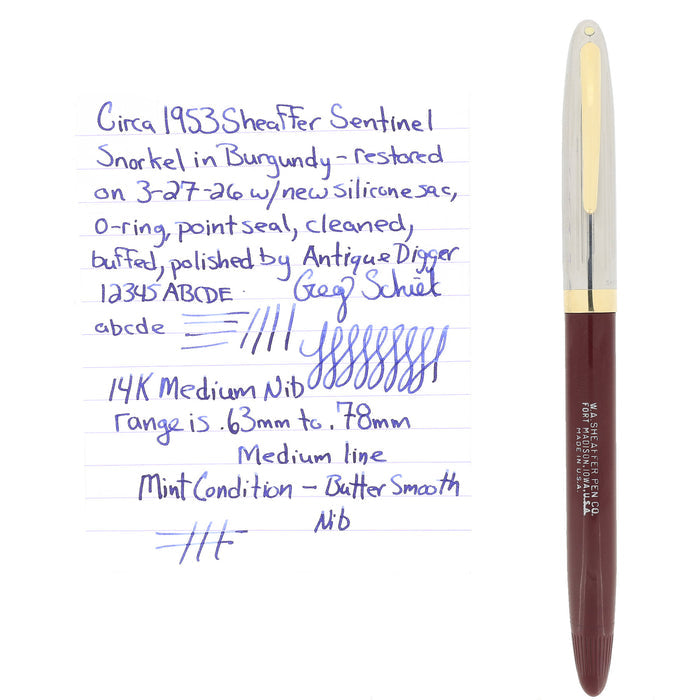 Circa 1953 Sheaffer Sentinel
Snorkel in Burgundy - restored
on 3-27-26 w/ new silicone sac,
O-ring, point seal, cleaned,
buffed, polished by Antique Digger
12345 ABCDE
abcde
14K Medium Nib
range is .63mm to .78mm
Medium line
Mint Condition - Butter Smooth
Nib
W.A. SHEAFFER PEN CO.
FORT MADISON, IOWA, U.S.A.
MADE IN U.S.A.